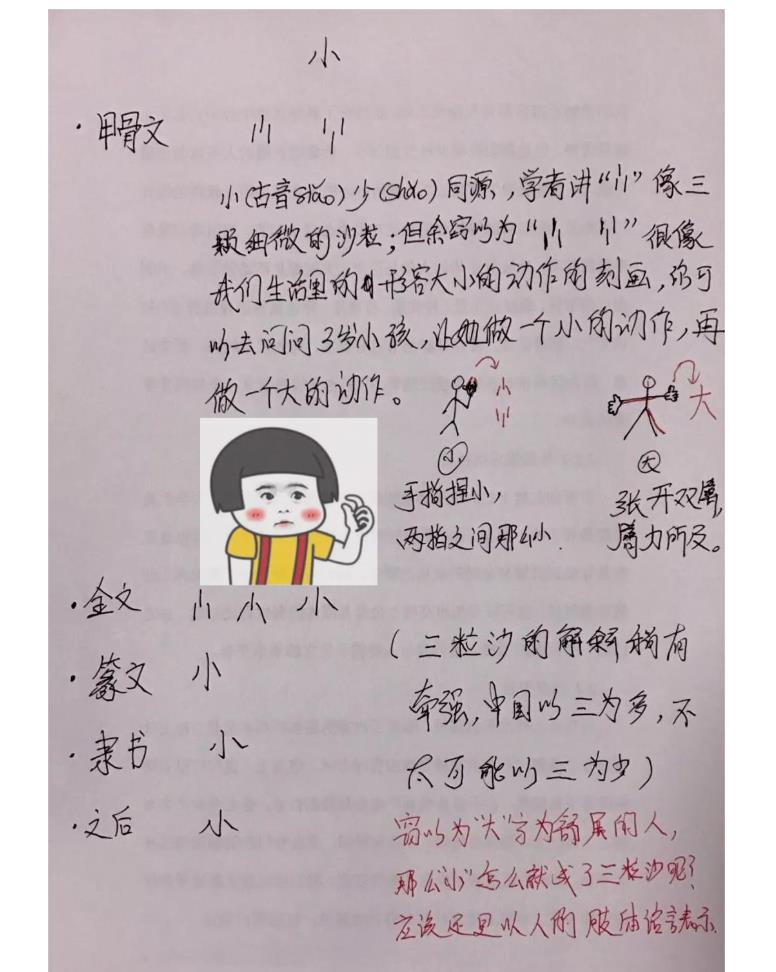 小
·甲骨文
小(古音siǎo)少(shǎo)同源,学者讲“小”像三
颗细微的沙粒;但余窃以为“小 小”很像
我们生活里的形容大小的动作的刻画,你可
以去问问3岁小孩,让她做一个小的动作,再
做一个大的动作。
大
小
大
手指捏小,
两指之间那么小.
张开双臂,
臂力所及。
·金文 小 小 小
·篆文 小
·隶书 小
·之后 小
(三粒沙的解释稍有
牵强,中国以三为多,不
太可能以三为少)
窃以为“大”字为舒展的人,
那么“小”怎么就成了三粒沙呢?
应该还是以人的肢体语言表示.